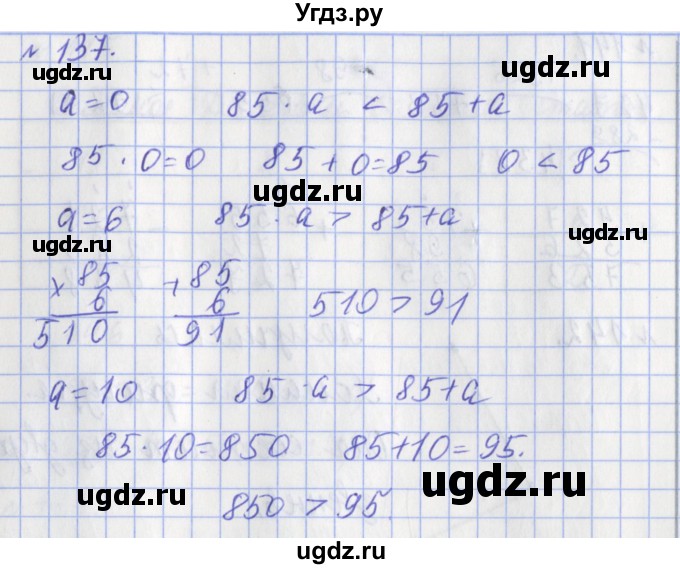 Угдз.ру
№ 137.
ugdz.ru ugdz.ru
a=0 85 · a < 85+a
85 · 0=0 85+0=85 0 < 85
ugdz.ru
a=6 85 · a > 85+a
ugdz.ru
× 85 + 85
6 6 510 > 91
510 91
ugdz.ru
ugdz.ru
a=10 85 · a > 85+a
85 · 10=850 85+10=95.
ugdz.ru ugdz.ru
850 > 95.
ugdz.ru